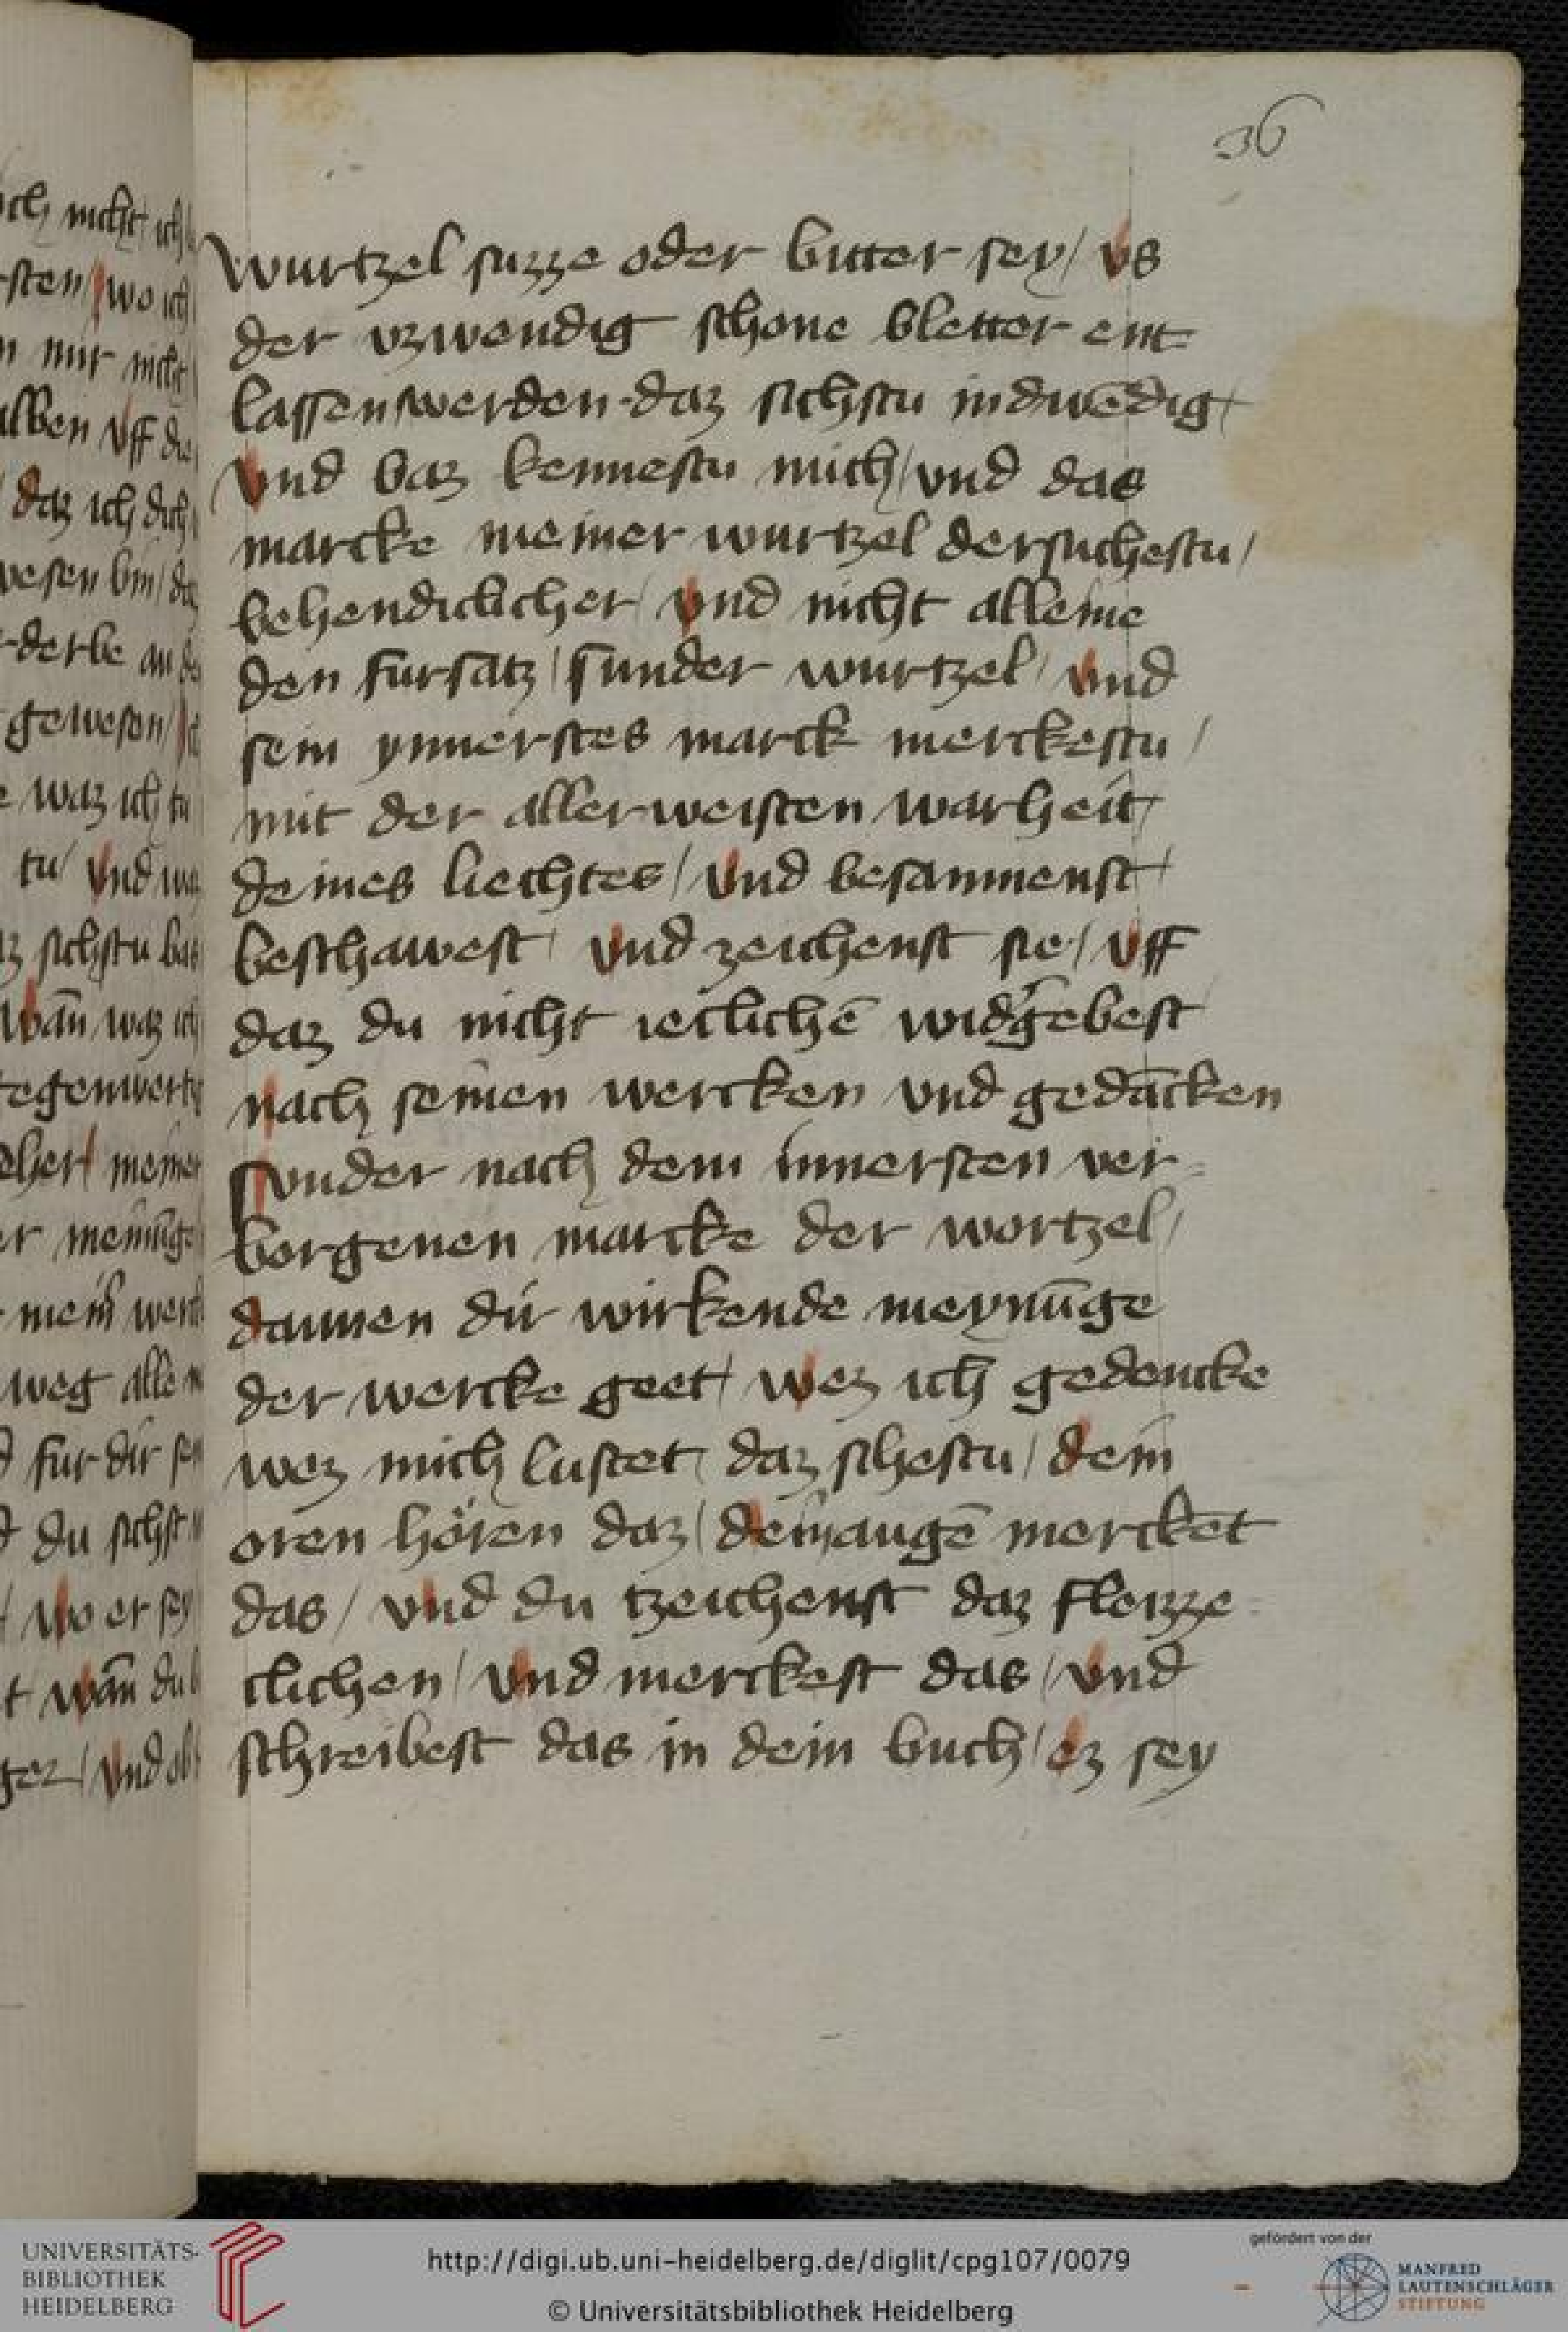 36
wurtzel suzze oder bitter sey / vs
der vzwendig schone bletter ent
lassen werden · daz sichstu indwēdig /
vnd baz kennestu mich / vnd das
marcke meiner wurtzel dersuchestu /
behendiclicher / vnd nicht alleine
den fursatz / sunder wurtzel / vnd
sein ynnerstes marck merckestu /
mit der allerweisten warheit /
deines liechtes / vnd besammenst /
beschawest / vnd zeichenst sie / vff
daz du nicht ieclichē widg̛ebest
nach seinen wercken vnd gedācken
sunder nach dem innersten ver-
borgenen marcke der wortzel /
dannen dir wirkende meynūge
der wercke geet / wez ich gedencke
wez mich lustet / daz sihestu / dein
oren hören daz / dein augē mercket
das / vnd du tzeichenst daz fleizze-
clichen / vnd merckest das / vnd
schreibest das in dein buch / ez sey
och nicht ich
wo ich
mir nicht
vff die
daz ich dich
wesen bin / daz
gewesen /
waz ich tu
tu / vnd
sichstu bas
wān waz ich
meiner
weg alle
fur dir
du sichst
wo er sey
wān du
vnd ob
UNIVERSITÄTS-
BIBLIOTHEK
HEIDELBERG
http://digi.ub.uni-heidelberg.de/diglit/cpg107/0079
© Universitätsbibliothek Heidelberg
gefördert von der
MANFRED
LAUTENSCHLÄGER
STIFTUNG